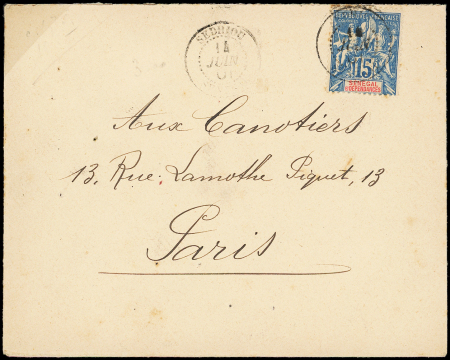 SEDHIOU
14
JUIN
01
14
JUIN
RÉPUBLIQUE FRANÇAISE
15
SÉNÉGAL
ET DÉPENDANCES
Aux Canotiers
13, Rue Lamothe Piquet, 13
Paris